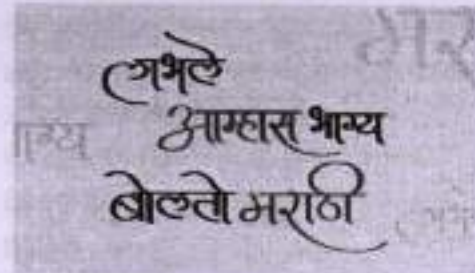 लाभले
आम्हास भाग्य
बोलतो मराठी